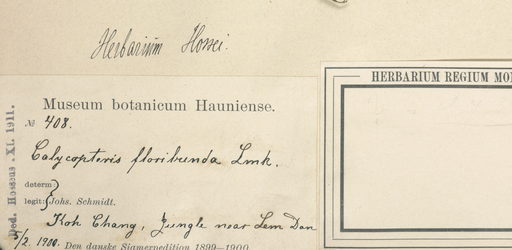 Herbarium Hossei.
HERBARIUM REGIUM MO
Museum botanicum Hauniense.
№ 408.
Calycopteris floribunda Lmk.
determ:
legit: Johs. Schmidt.
Koh Chang, Jungle near Lem Dan
5/2. 1900. Den danske Siamexpedition 1899–1900
Ded. Hosseus. XI. 1911.